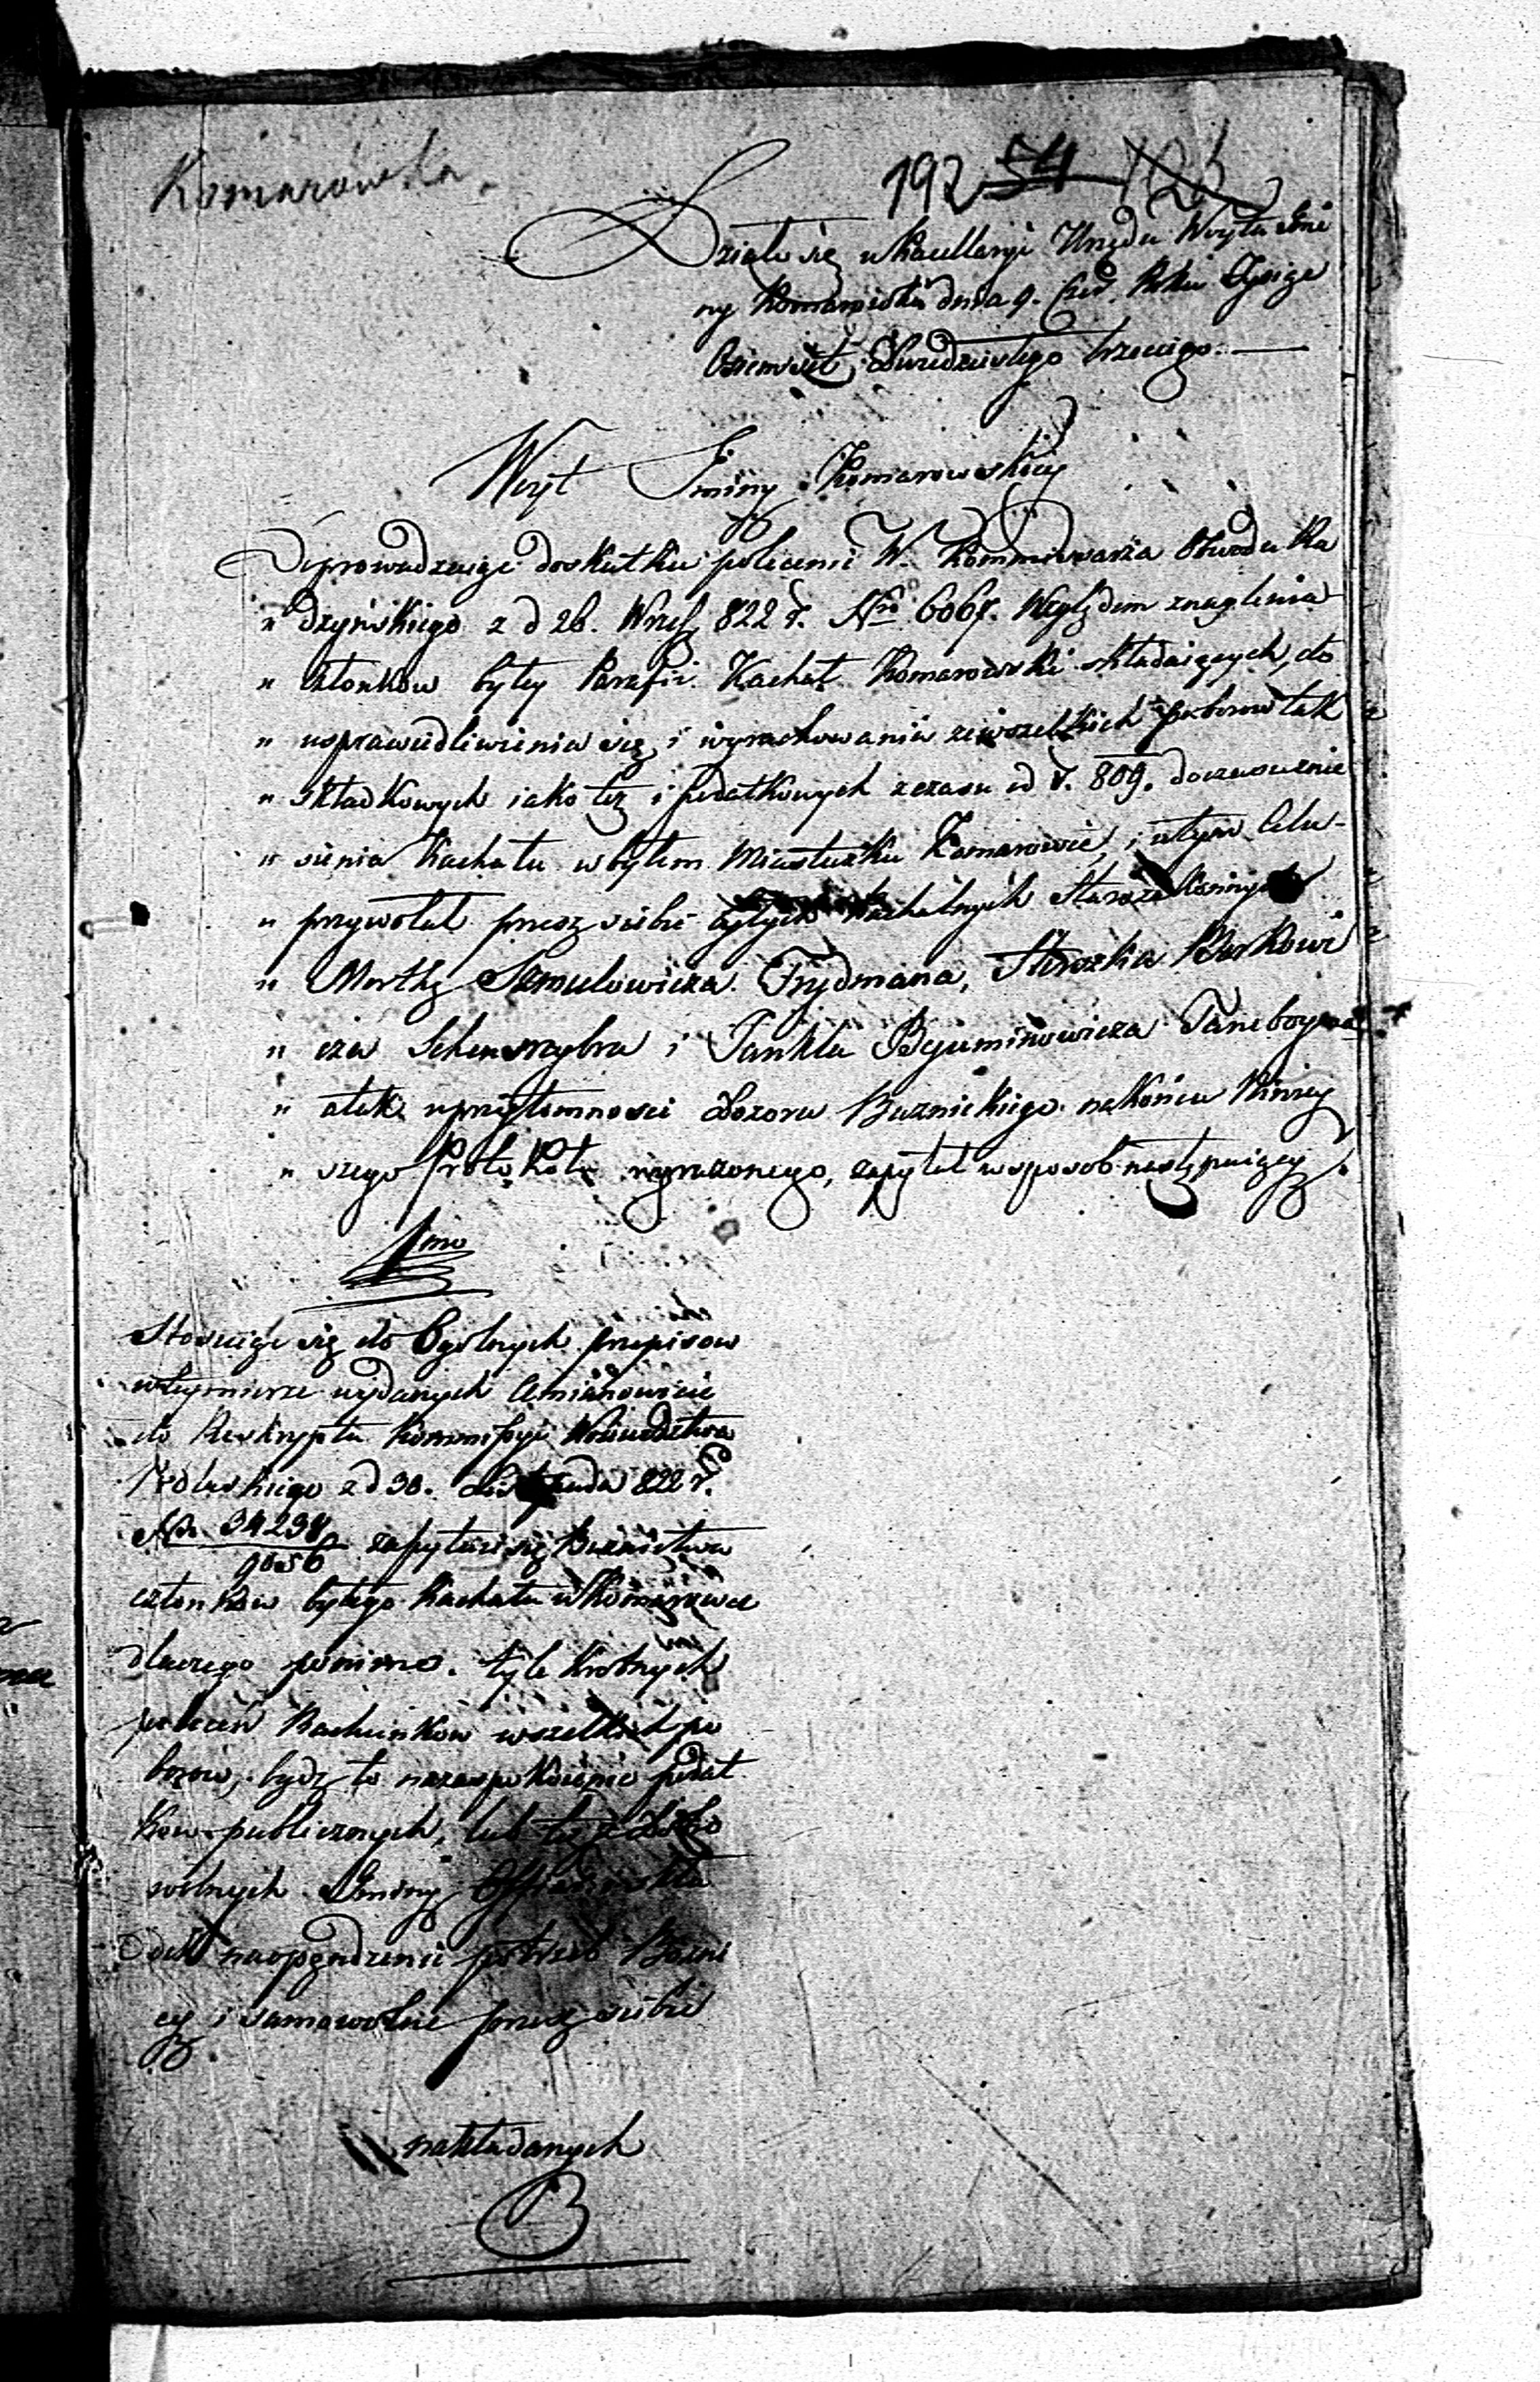 Komarówka.
192 54 126
Działo się w Kancellaryi Urzędu Woyta Gmi
ny Komarowki dnia 9. Czer. Roku Tysiąc
Osiemset, Dwudziestego trzeciego. —
Woyt Gminy Komarowskiey
Doprowadzaiąc do skutku polecenie W. Kommissarza Obwodu Ra
„ dzyńskiego z d 26. Wrześ 822 r. Nro 6067. Względem znaglenia
„ członków byłey Parafii Kachał Komarowski składaiących, do
„ usprawiedliwienia się i wyrachowania ze wszelkich poborow tak
„ składkowych iako też i podatkowych z czasu od r. 809. do czasu znie
„ sienia Kachału w byłem Miasteczku Komarowce, i w tym Celu
„ przywołał przez siebie byłych Kachalnych Starozakonnych
„ Morthę Szmulowicza Frydmana, Herszka Berkowi
„ cza Schenszybra i Jankla Byuminowicza Taneboyma
„ a tak w przytomności Dozoru Buznickiego na końcu Niniey
„ szego Protokołu wyrazonego, zapytał w sposob następuiący.
1mo
Stosuiąc się do Ogolnych przepisow
w tey mierze wydanych a mianowicie
do Reskryptu Kommissyi Woiewodztwa
Podlaskiego z d 30. Listopada 822 r.
Nro 34238
9656 zapytuie się Buznictwa
członkow byłego Kachału w Komarowce
dlaczego pomimo tyle krotnych
poleceń Rachunków wszelkich po
borów, bydz to na zaspokoienie podat
kow publicznych, lub też z dobro
wolnych Gminy Offiar
na opędzenie potrzeb Bozni
cy i samowolnie przez siebie
nakładanych